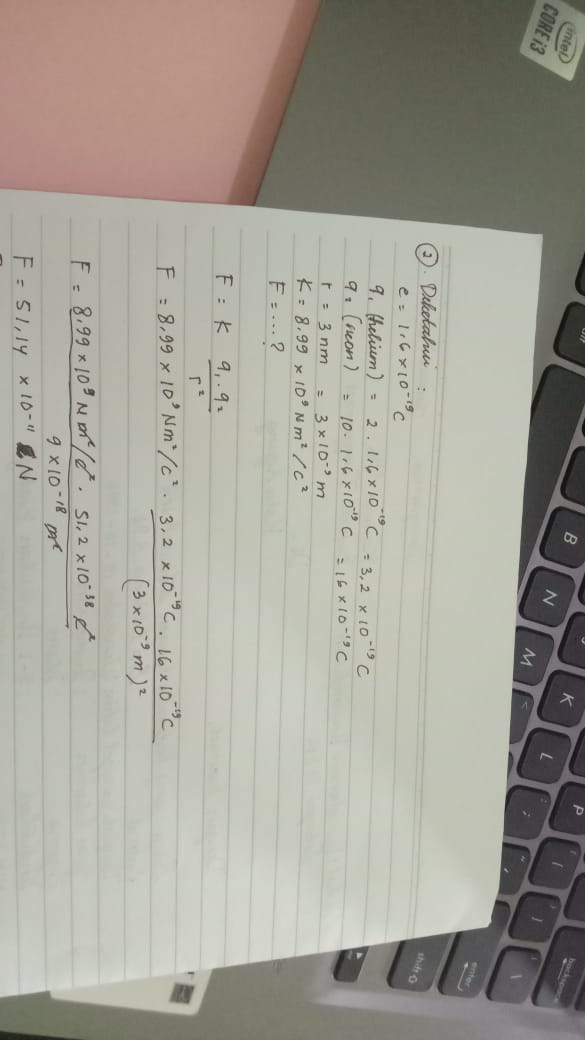 ②. Diketahui :
e = 1,6 × 10⁻¹⁹ C
q₁ (helium) = 2 . 1,6 × 10⁻¹⁹ C = 3,2 × 10⁻¹⁹ C
q₂ (neon) = 10 . 1,6 × 10⁻¹⁹ C = 16 × 10⁻¹⁹ C
r = 3 nm = 3 × 10⁻⁹ m
K = 8,99 × 10⁹ N m² / C²
F = .... ?
F = K q₁ . q₂ / r²
F = 8,99 × 10⁹ N m² / C² . 3,2 × 10⁻¹⁹ C . 16 × 10⁻¹⁹ C
(3 × 10⁻⁹ m)²
F = 8,99 × 10⁹ N m² / C² . 51,2 × 10⁻³⁸ C²
9 × 10⁻¹⁸ m²
F = 51,14 × 10⁻¹¹ N
intel
CORE i3
B
N
M
K
L
P
;
enter
shift
backspace